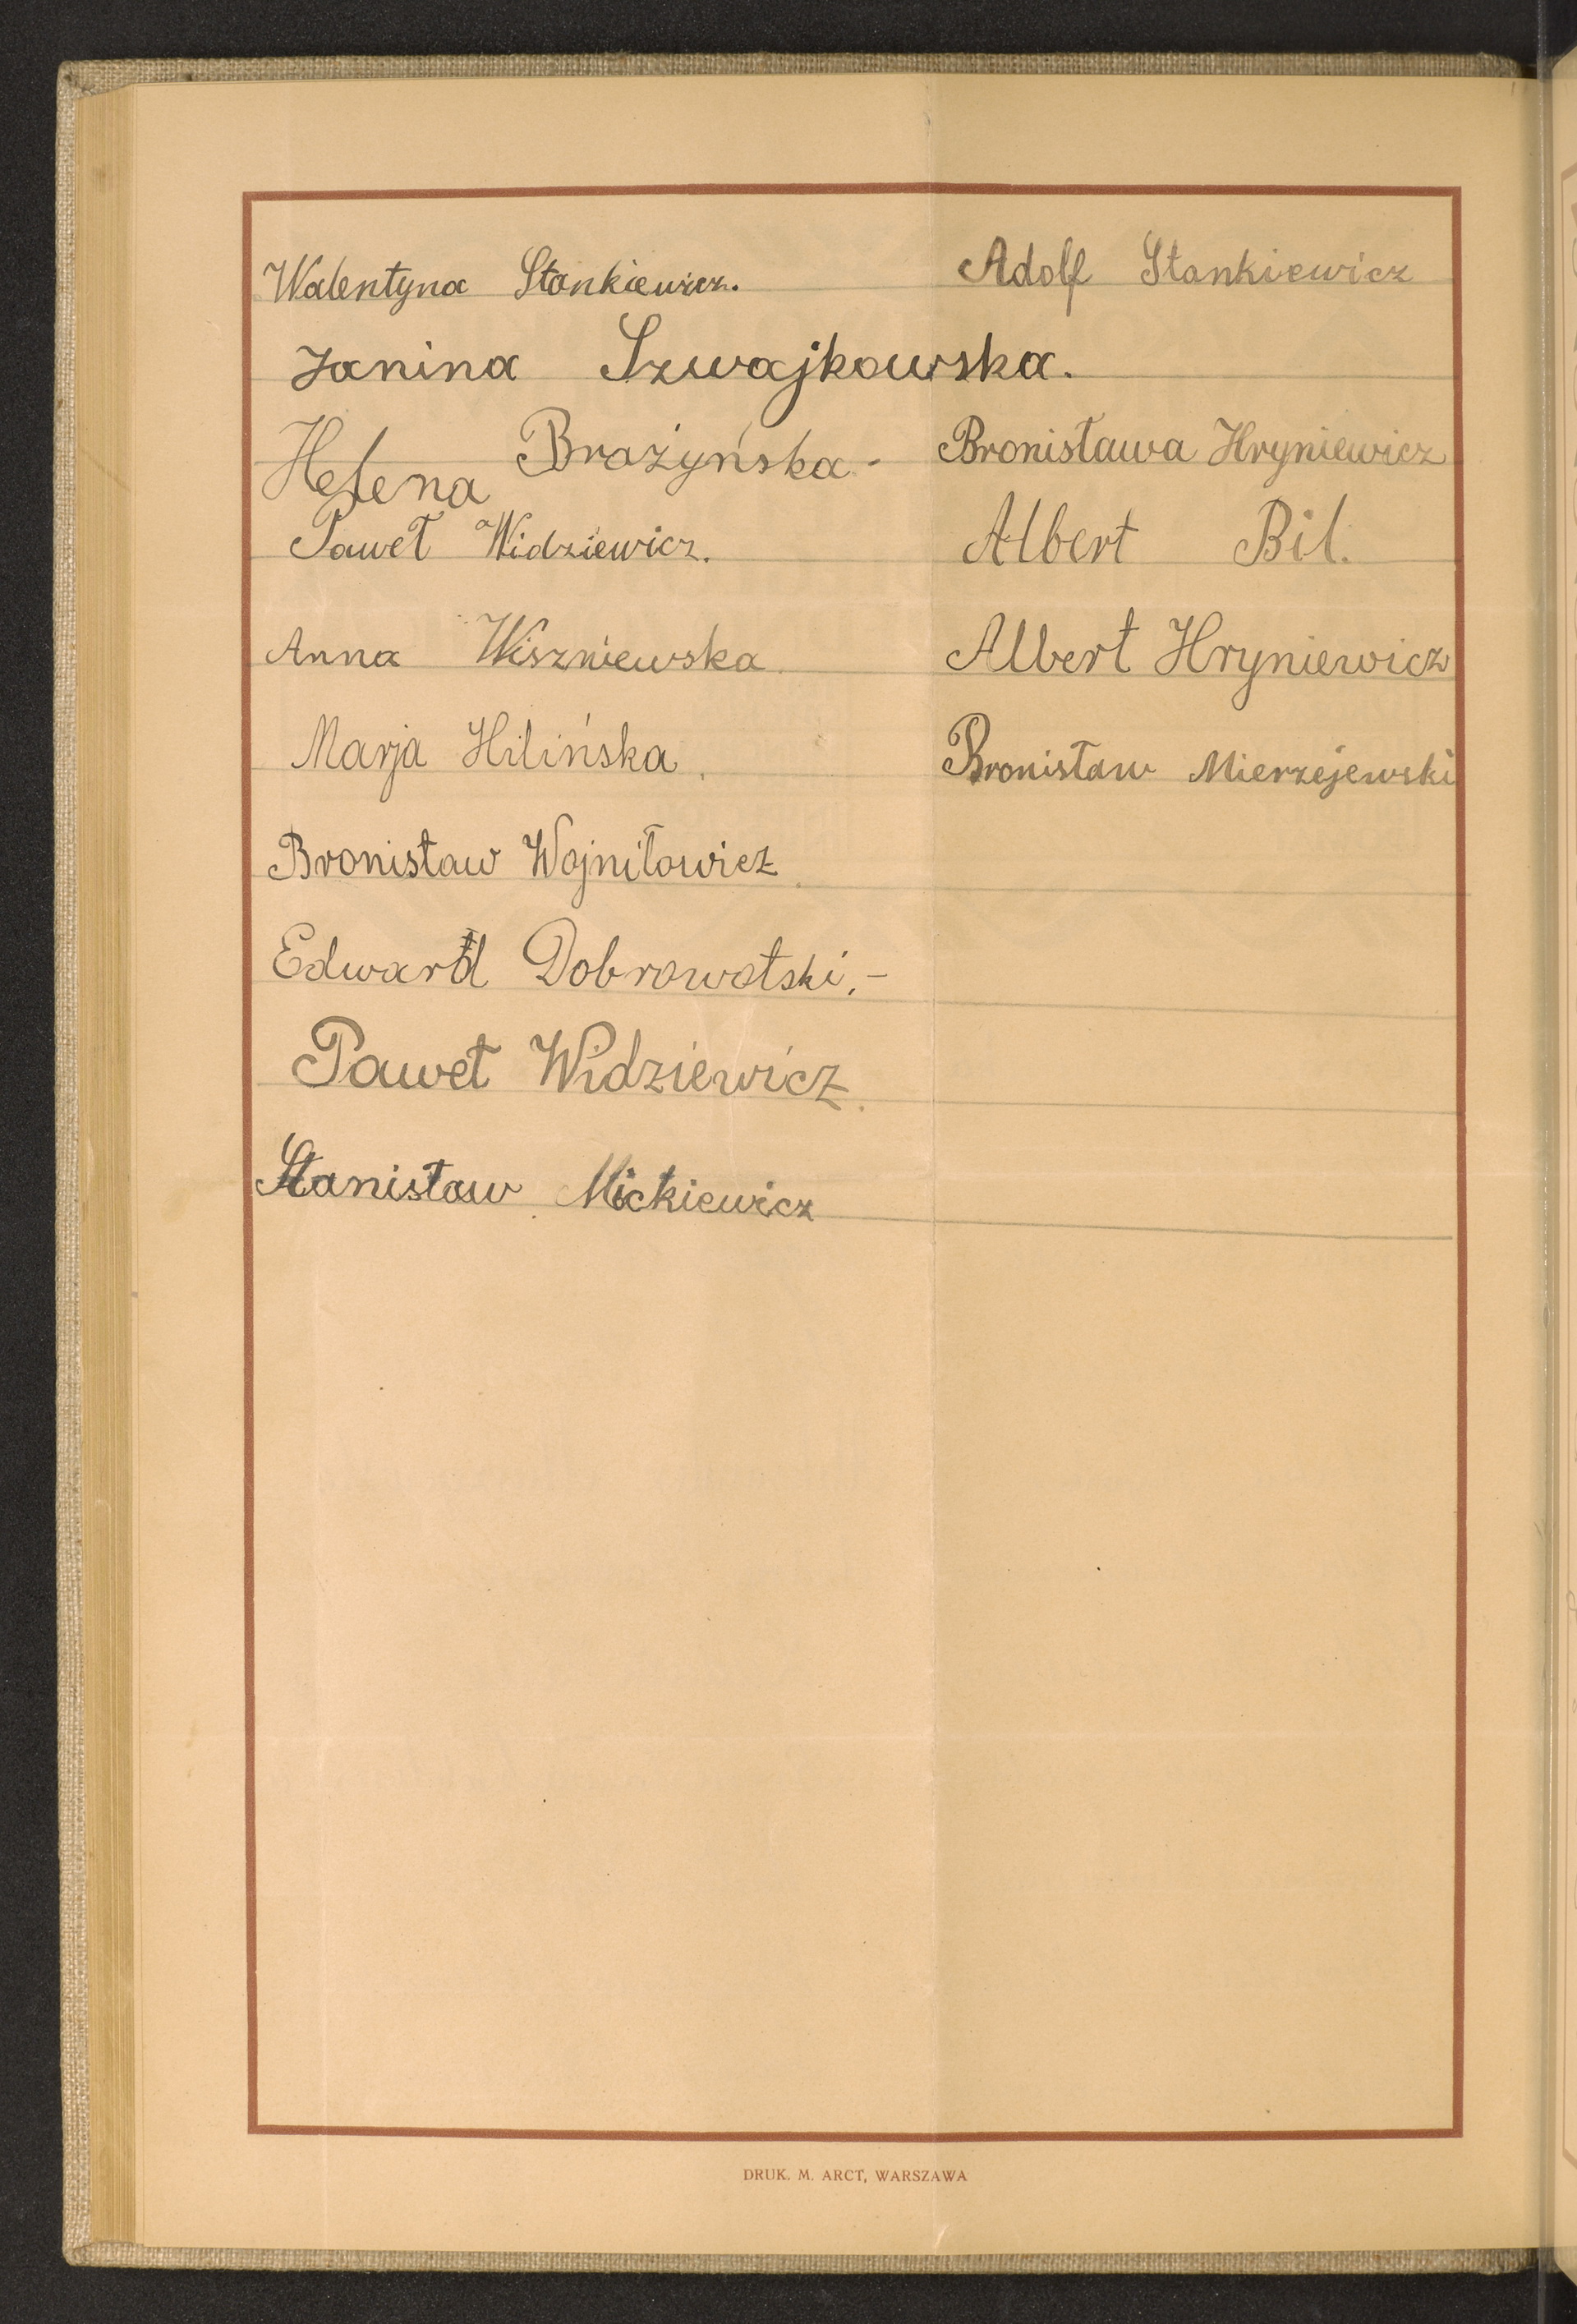 Walentyna Stankiewicz.
Janina Szwajkowska.
Helena Brażyńska -
Paweł Widziewicz.
Anna Wiszniewska
Marja Hilińska.
Bronisław Wojniłowicz.
Edward Dobrowolski.-
Paweł Widziewicz.
Stanisław Mickiewicz
Adolf Stankiewicz
Bronisława Hryniewicz
Albert Bil.
Albert Hryniewicz
Bronisław Mierzejewski
DRUK. M. ARCT, WARSZAWA